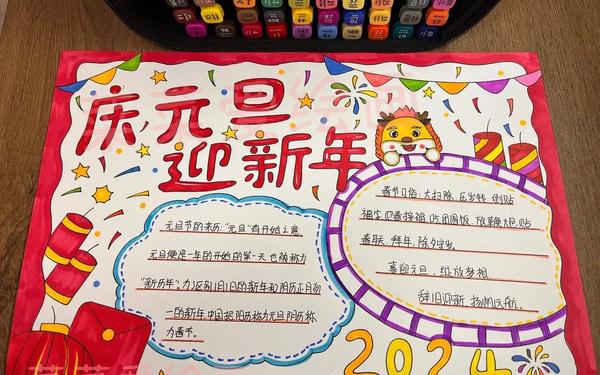 庆元旦
迎新年
元旦节的来历:"元旦"有开始之意
元旦便是一年的开始的第一天也被称为
"新历年",为区别旧日的新年和阳历正月初
一的新年中国把阳历称为元旦阴历称
为春节。
春节习俗:大扫除、压岁钱、倒贴
福字、迎春接福、吃团圆饭、放鞭炮、贴
春联、拜年、除夕守岁。
喜迎元旦,绽放梦想
辞旧迎新,扬帆远航。
2024